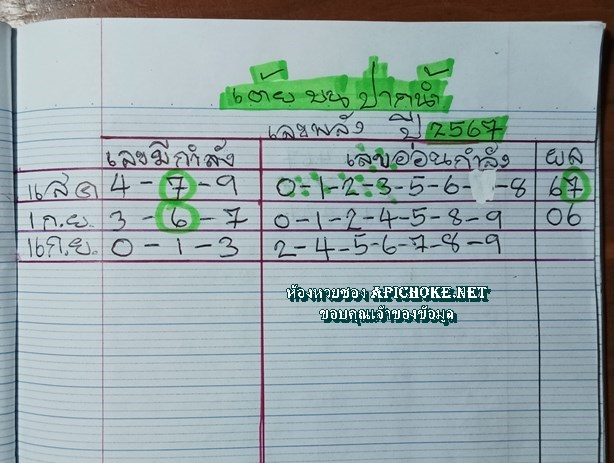 เต้ย บน ปากน้ำ
เลขพลัง ปี 2567
เลขมีกำลัง เลขอ่อนกำลัง ผล
16 ส.ค 4-7-9 0-1-2-3-5-6- -8 67
1 ก.ย. 3-6-7 0-1-2-4-5-8-9 06
16 ก.ย. 0-1-3 2-4-5-6-7-8-9
ห้องหวยซอง APICHOKE.NET
ขอบคุณเจ้าของข้อมูล